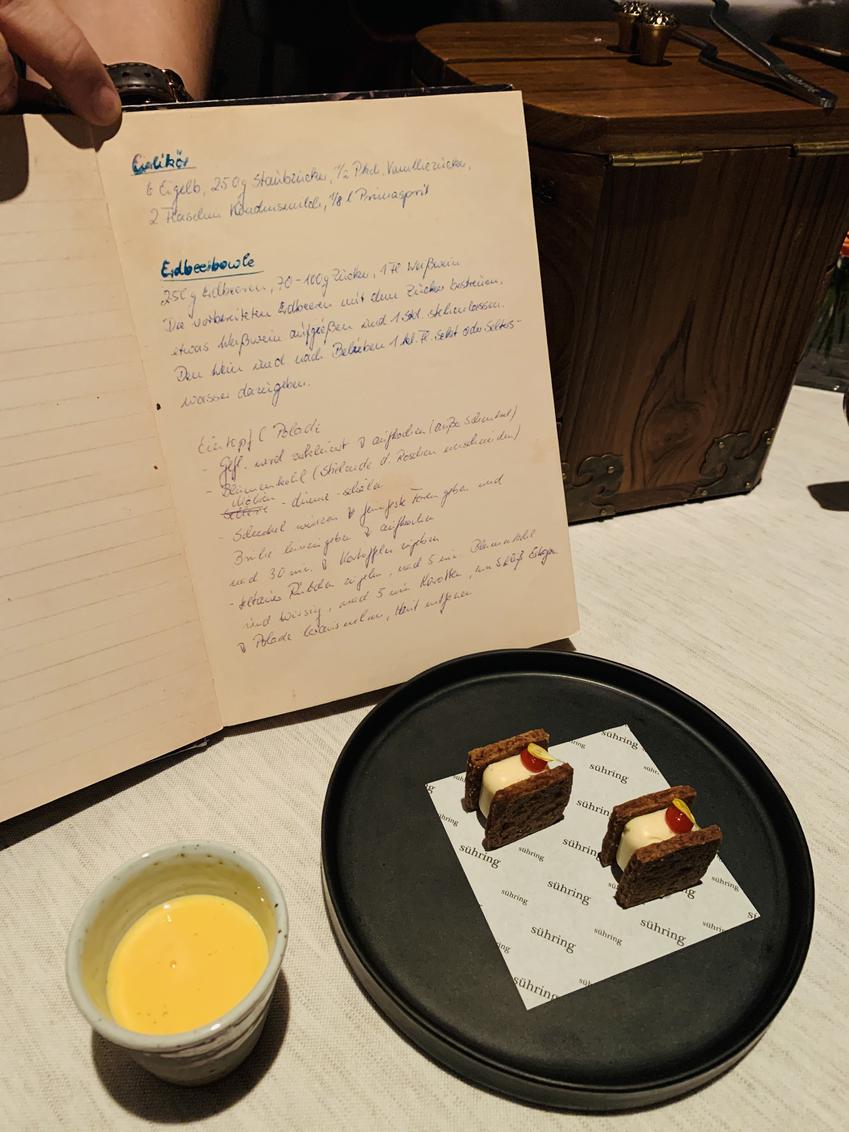 Eierlikör
6 Eigelb, 250g Staubzucker, 1/2 Pkch. Vanillezucker,
2 Flaschen Kondensmilch, 1/8 l Primasprit
Erdbeerbowle
250g Erdbeeren, 70-100g Zucker, 1 Fl. Weißwein
Die vorbereiteten Erdbeeren mit dem Zucker bestreuen,
etwas Weißwein aufgießen und 1 Std. stehenlassen.
Den Wein und nach Belieben 1 kl. Fl. Sekt oder Selters-
wasser dazugeben.
Eintopf (Polade
- Gefl. wird zerkleinert aufkochen (außer Schenkel)
- Blumenkohl (Stielende d. Röschen einschneiden)
Möhren
- dünne - schälen
- Schenkel würzen feuerfeste Form geben und
Brühe hineingeben aufkochen
und 30 min. Kartoffeln zugeben
- Rübchen zugeben, nach 5 min Blumenkohl
und Wirsing, nach 5 min Karotten, am Schluß
Polade herausnehmen, Haut entfernen
sühring
sühring
sühring
sühring
sühring
sühring
sühring
sühring
sühring
sühring
sühring
sühring
sühring